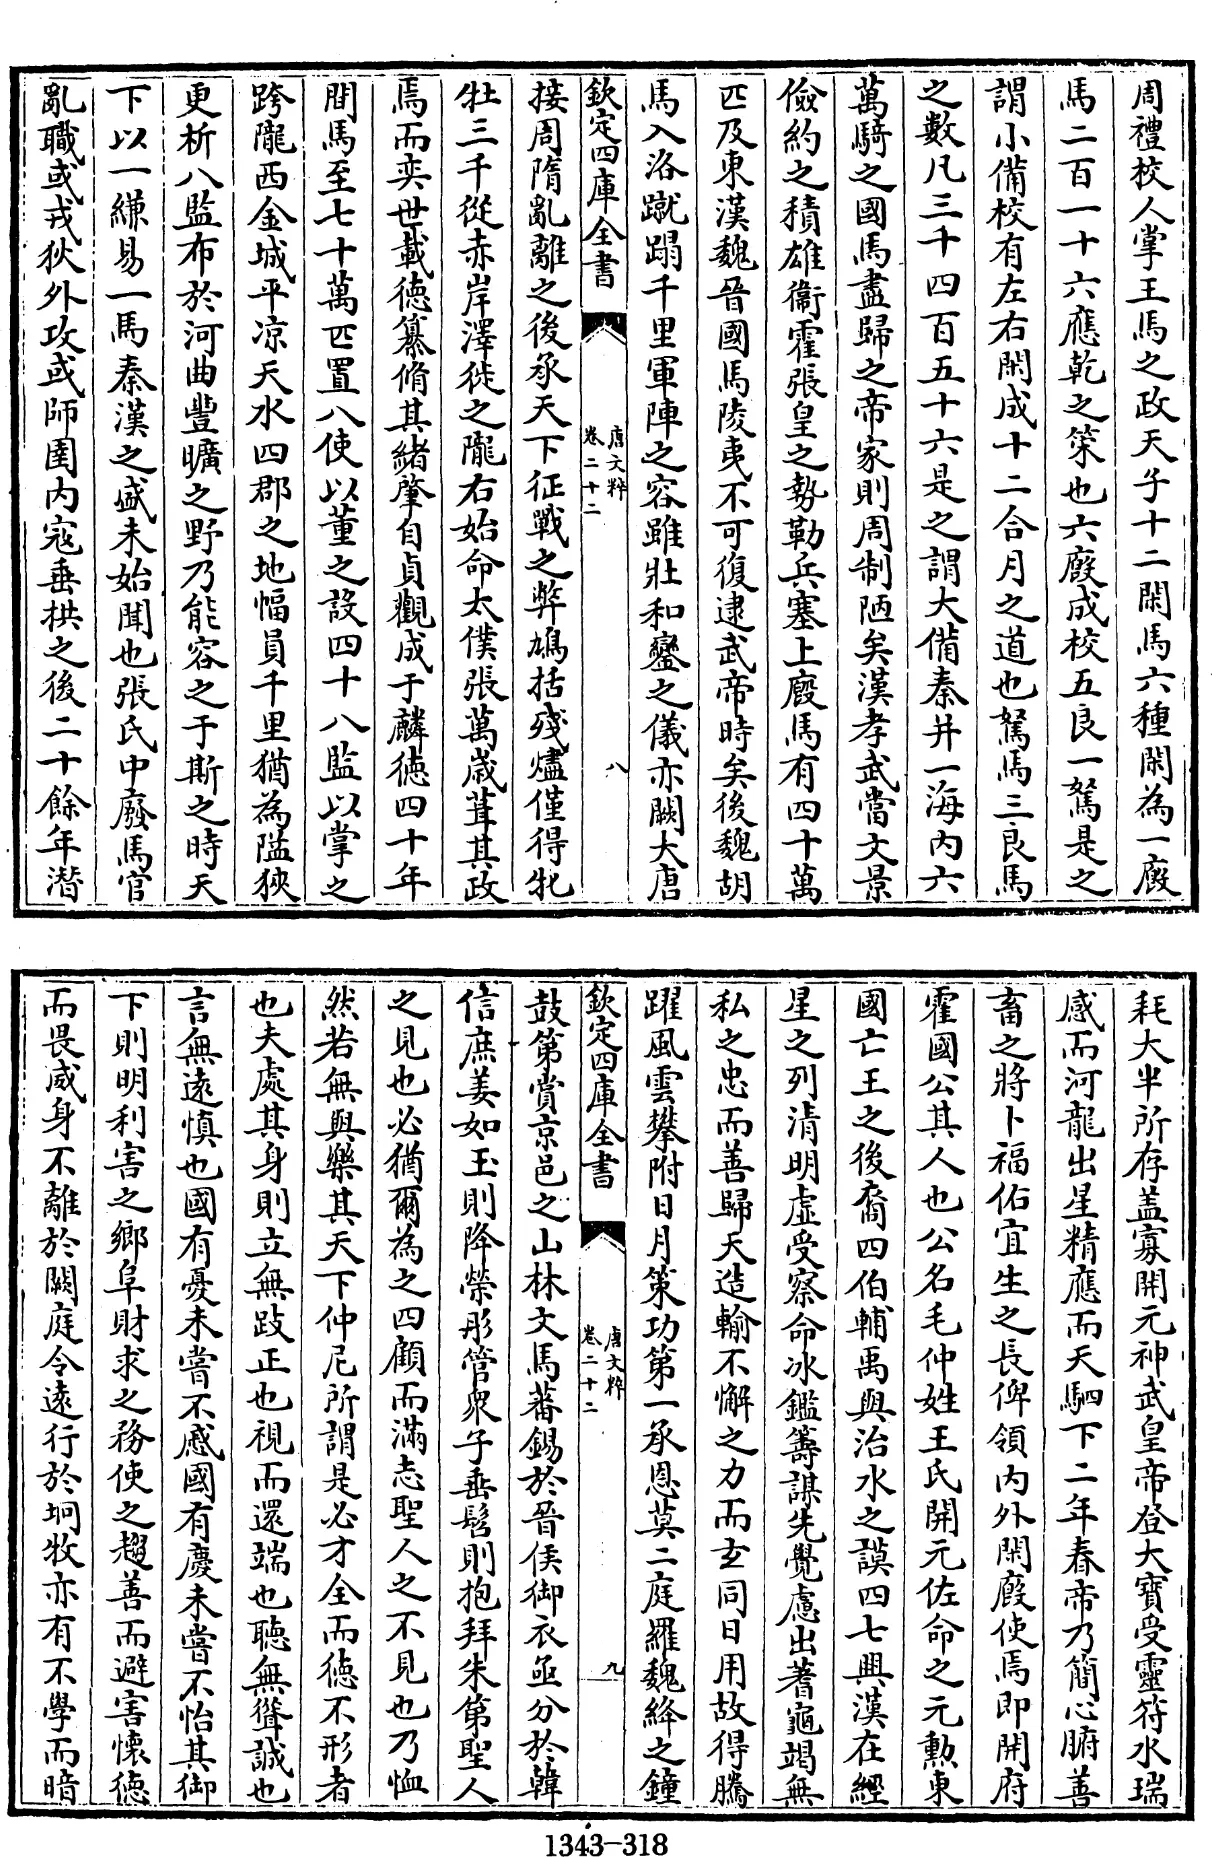 周禮校人掌王馬之政天子十二閑馬六種閑為一廄
馬二百一十六應乾之策也六廄成校五良一駑是之
謂小備校有左右閑成十二合月之道也駑馬三良馬
之數凡三千四百五十六是之謂大備秦并一海内六
萬騎之國馬盡歸之帝家則周制陋矣漢孝武當文景
儉約之積雄衞霍張皇之勢勒兵塞上廄馬有四十萬
匹及東漢魏晉國馬陵夷不可復逮武帝時矣後魏胡
馬入洛蹴蹋千里軍陣之容雖壯和鑾之儀亦闕大唐
欽定四庫全書
唐文粹
卷二十二
八
接周隋亂離之後承天下征戰之弊鳩括殘燼僅得牝
牡三千從赤岸澤徙之隴右始命太僕張萬歲葺其政
焉而奕世載德纂脩其緒肇自貞觀成于麟德四十年
間馬至七十萬匹置八使以董之設四十八監以掌之
跨隴西金城平凉天水四郡之地幅員千里猶為隘狹
更析八監布於河曲豐曠之野乃能容之于斯之時天
下以一縑易一馬秦漢之盛未始聞也張氏中廢馬官
亂職或戎狄外攻或師圉内寇垂拱之後二十餘年潛
耗大半所存盖寡開元神武皇帝登大寶受靈符水瑞
感而河龍出星精應而天駟下二年春帝乃簡心腑善
畜之將卜福佑宜生之長俾領内外閑廄使焉即開府
霍國公其人也公名毛仲姓王氏開元佐命之元勳東
國亡王之後裔四伯輔禹與治水之謨四七興漢在經
星之列清明虛受察命氷鑑籌謀先覺慮出蓍龜竭無
私之忠而善歸天造輸不懈之力而玄同日用故得騰
躍風雲攀附日月策功第一承恩莫二庭羅魏絳之鐘
欽定四庫全書
唐文粹
卷二十二
九
鼓第賞京邑之山林文馬蕃錫於晉侯御衣亟分於韓
信庶姜如玉則降榮彤管衆子垂髫則抱拜朱第聖人
之見也必猶爾為之四顧而滿志聖人之不見也乃恤
然若無與樂其天下仲尼所謂是必才全而德不形者
也夫處其身則立無跂正也視而還端也聴無聳誠也
言無遠慎也國有憂未嘗不慼國有慶未嘗不怡其御
下則明利害之鄉阜財求之務使之趨善而避害懷德
而畏威身不離於闕庭令遠行於坰牧亦有不學而暗
1343-318